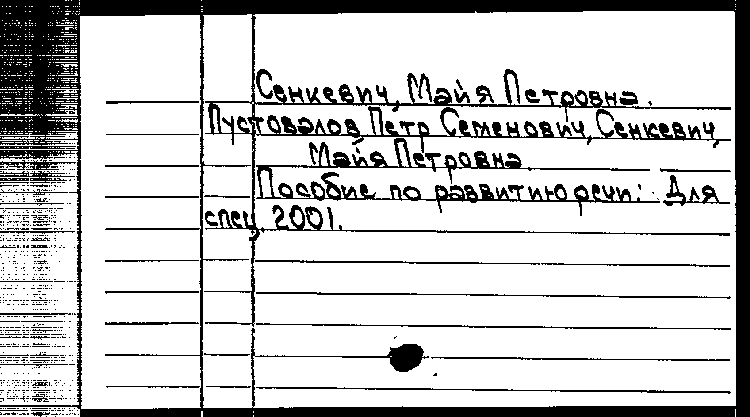 Сенкевич, Майя Петровна.
Пустовалов, Петр Семенович, Сенкевич,
Майя Петровна
Пособие по развитию речи: Для
спец. 2001.